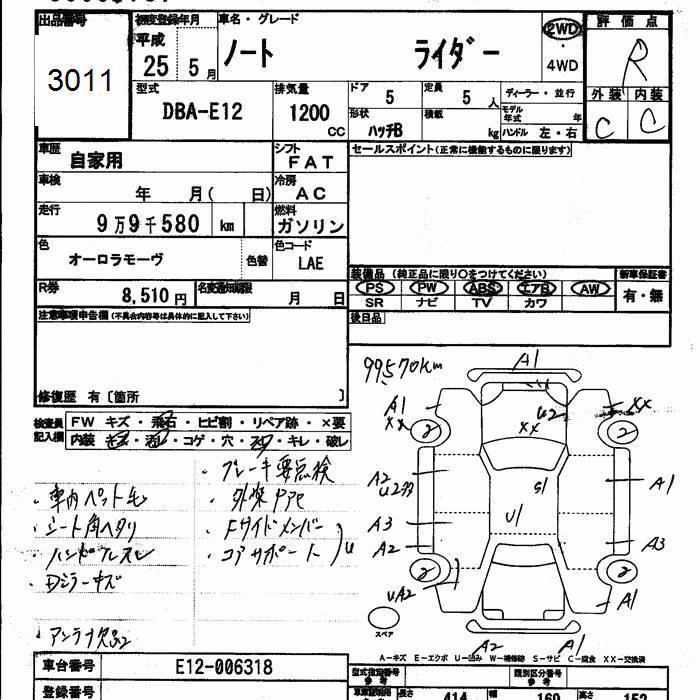 出品番号 3011
初度登録年月 平成 25 5月
車名・グレード
ノート ライダー
2WD・4WD
評価点 R
外装 C 内装 C
型式 DBA-E12
排気量 1200 CC
ドア 5 定員 5 人
形状 ハッチB 積載 kg
ディーラー・並行
モデル年式 年
ハンドル 左・右
車歴 自家用
シフト FAT
セールスポイント(正常に機能するものに限ります)
車検 年 月( 日)
冷房 AC
走行 9万9千580 km
燃料 ガソリン
色 オーロラモーヴ 色替
色コード LAE
装備品 (純正品に限り○をつけてください)
新車保証書
有・無
PS PW ABS エアB AW
SR ナビ TV カワ
R券 8,510円
名変通知期限 月 日
後日品
注意事項申告欄(不具合内容等は具体的に記入して下さい)
修復歴 有〔箇所 〕
検査員記入欄
FW キズ・飛石・ヒビ割・リペア跡・×要
内装 キズ・汚レ・コゲ・穴・スレ・キレ・破レ
・ブレーキ要点検
・車内ペット毛
・外装
・シート角ヘタリ
・Fサイドメンバー
・ハンドルスレ
・コアサポート U
・Dミラーキズ
・アンテナ欠品
99570km
A1
A1 XX
U2 XX
XX
2 2
A2
S1
A1
U1
A3
A2
A3
2 2
UA2
A1
スペア
A2 A1
A-キズ E-エクボ U-凹み W-補修跡 S-サビ C-腐食 XX-交換済
車台番号 E12-006318
型式指定番号 参考
類別区分番号 参考
登録番号
長さ 414 幅 169 152